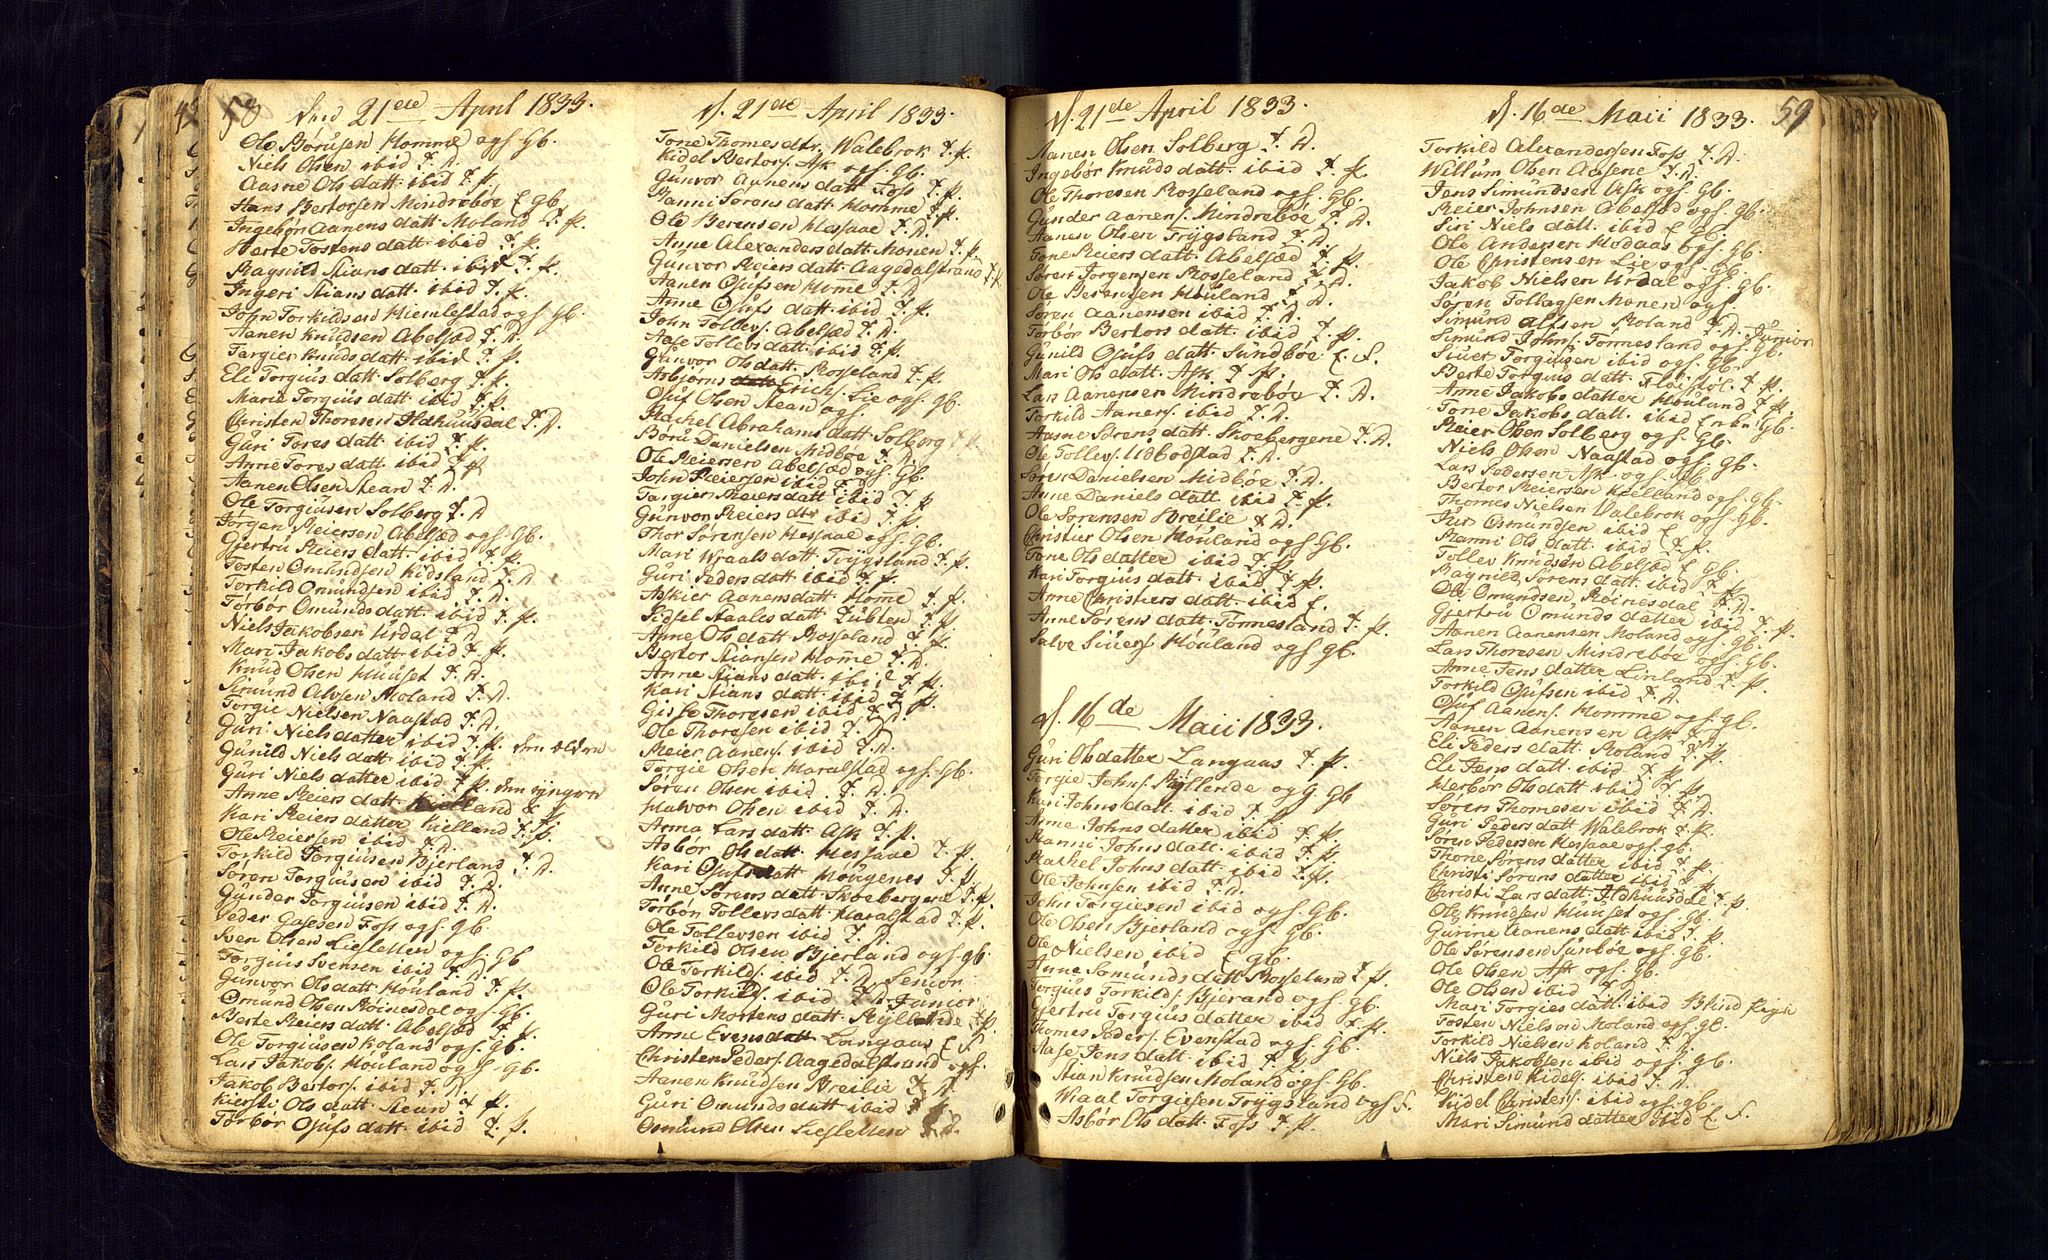 58 21de April 1833.
Ole Börüsen Homme ogs. Gb.
Niels Olsen ibid T. D.
Aasne Ols datt. ibid T. P.
Hans Bertorsen Mindreböe E gb.
Ingebör Aanens datt. Moland T. P.
Berte Tostens datt. ibid T. P.
Ragnild Stians datt. ibid T. P.
Ingeri Stians datt. ibid T. P.
John Torkildsen Hiemlestad ogs Gb.
Aanen Knüdsen Abelsæd T. D.
Targier Knüds datt. ibid T. P.
Eli Torgiüs datt. Solberg T. P.
Marie Torgiüs datt. ibid T. P.
Christen Thoresen Ildhuusdal T. D.
Güri Tores datt. ibid T. P.
Anne Tores datt. ibid T. P.
Aanen Olsen Steard T. D.
Ole Torgiüsen Solberg T. D
Jörgen Reiersen Abelsæd ogs. Gb.
Gjertrü Reiers datt. ibid T. P.
Tosten Omündsen Kidsland T. D
Torkild Omündsen ibid T. D.
Torbör Omünds datt. ibid T. P.
Niels Jakobsen Urdal T. D
Mari Jakobs datt. ibid T. P.
Knud Olsen Hüüset T. D.
Simünd Alvsen Moland T. D.
Torgie Nielsen Naastad T. D.
Güri Niels datter ibid T. P. den ældre
Günild Niels datt ibid T. P.
Güri Niels datter ibid T. P. den yngre
Anne Reiers datt. Kielland T. P.
Kari Reiers datter Kielland T. P.
Ole Reiersen ibid T. D.
Torkild Torgiüsen Bjerland T. D.
Sören Torgiüsen ibid T. D.
Günder Torgiüsen ibid T. D.
Peder Foss ogs. Gb.
Sven Olsen Liesletten ogs. Gb
Torgiüs Svensen ibid T. D.
Günvor Ols datt. Houland T. P.
Omünd Olsen Röinesdal ogs. Gb.
Berte Reiers datt. Abelsæd T. P.
Ole Torgiüsen Roland ogs. Gb.
Lars Jakobs. Houland ogs. gb.
Jakob Bertors. ibid T. D.
Kiersti Ols datt. Steard T. P.
Torbör Osüfs datt. ibid T. P.

d. 21de April 1833.
Tone Thomes dtr. Walebrok T. P.
Kidel Bertors. Ask ogs. Gb.
Günvor Aanens datt Foss T. P.
Ranni Sörens datt. Homme T. P.
Ole Berensen Hessaae T. D.
Anne Alexanders datt. Monen T. P.
Günvor Reiers datt. Aagedalstrand T. P.
Aanen Osüfsen Home T. D
Anne Osüfs datt. ibid T. P.
John Tollevs. Abelsæd T. D.
Aase Tollevs datt. ibid T. P.
Günvor Ols datt. Rosseland T. P.
Asbjörns Erichs. Lie ogs. gb.
Osüf Olsen Steard ogs.
Rachel Abrahams datt. Solberg T. P.
Börü Danielsen Midböe T. D.
Ole Reiersen Abelsæd ogs. Gb.
John Reiersen ibid T. D
Targier Reiers datt ibid T. P
Günvor Reiers dtr ibid T. P.
Thor Sörensen Hessaae ogs. Gb.
Mari Wraals datt. Trygsland T. P.
Güri Peders datt. ibid T. P.
Askier Aanens datt. Home T. P.
Sidsel Staales datt. T. P.
Anne Ols datt Rosseland T. P.
Bertor Stiansen Home T. D.
Anne Stians datt. ibid T. P.
Kari Stians datt. ibid T. P.
Gisse Thoresen ibid T. D.
Ole Thoresen ibid T. D.
Reier Aanens. ibid T. D.
Torgie Olsen Haralstad ogs. Gb.
Sören Olsen ibid T. D.
Halvor Olsen ibid T. D.
Anna Lars datt. Ask T. P.
Asbör Ols datt Hessaae T. P.
Kari Osüfs datt Hougenes T. P.
Anne Sörens datt. Skoebergene T. P.
Törbör Tollevs datt. Haralstad T. P.
Ole Tollevsen ibid T. D.
Torkild Olsen Bjerland ogs. gb.
Ole Torkilds. ibid T. D. Senior
Ole Torkilds. ibid T. D. Junior
Güri Mortens datt. Ryllende T. P.
Anne Evens datt Langaas E S
Christen Peders. Aagedalstrand ogs.
Aanen Knüdsen Breilie T. D.
Güri Omünds datt ibid T.
Osmünd Olsen Liesletten T. D.

d. 21de April 1833
Aanen Olsen Solberg T. D.
Ingebör Knüds datt. ibid T. P.
Ole Thoresen Rosseland ogs. Gb.
Günder Aanens. Mindreböe T. D.
Aanen Olsen Trygsland T. D.
Tone Reiers datt. Abelsæd T. P.
Sören Jörgensen Rosseland T. D.
Ole Berensen Houland T. D.
Sören Aanensen ibid T. D.
Torbör Bertors datt. ibid T. P.
Günild Osüfs datt. Sundböe E. S.
Mari Ols datt. Ask T. P.
Lars Aanensen Mindreböe T. D.
Torkild Aanens. ibid T. D.
Aasne Sörens datt. Skoebergene T. D.
Ole Tollevs. Udbodstad T. D.
Sören Danielsen Midböe T. D.
Anne Daniels datt. ibid T. P.
Ole Sörensen Breilie T. D.
Christier Olsen Houland ogs Gb.
Tone Ols datter ibid T. P.
Kari Torgiüs datt. ibid T. P.
Anne Christiers datt. ibid E.
Anne Sörens datt. Tonnesland T. P.
Salve Siüers. Houland ogs gb.

d. 16de Maii 1833.
Güri Ols datter Langaas T. P.
Torgie Johns. Ryllende og G Gb
Kari Johns datt. ibid T. P.
Anne Johns datter ibid T. P.
Ranni Johns datt. ibid T. P.
Rachel Johns datt. ibid T. P.
Ole Johnsen ibid T. D.
John Torgiesen ibid ogs. Gb.
Ole Olsen Bjerland ogs. Gb.
Ole Nielsen ibid E gb.
Anne Somünds datt. Rosseland T. P.
Torgiüs Torkilds. Bjerand ogs. Gb.
Gjertrü Torgiüs datter ibid T. P.
Thomes Peders. Evenstad ogs. Gb.
Aase Jens datt. ibid T. P.
Stian Knüdsen Moland ogs. Gb.
Wraal Torgiesen Trygsland ogs S.
Asbör Ols datt. Foss T. P.

d. 16de Maii 1833. 59
Torkild Alexandersen Foss T. D.
Willum Olsen Aasene T. D.
Jens Simündsen Ask ogs. Gb.
Reier Johnsen Abelsæd ogs. Gb.
Siri Niels datt. ibid E
Ole Andersen Modaas ogs. Gb.
Ole Christensen Lie ogs. Gb.
Jakob Nielsen Urdal ogs. Gb.
Sören Tollagsen Monen ogs
Simünd Alfsen Moland T. D. Junior
Simünd Johns. Tonnesland ogs. Gb.
Siuer Torgiüsen ibid ogs. Gb.
Berte Torgiüs datt. Flöistöl T. P.
Anne Jakobs datter Houland T. P.
Tone Jakobs datt. ibid Gb.
Reier Olsen Solberg ogs. Gb.
Niels Olsen Naastad ogs. Gb.
Lars Pedersen Ask ogs. Gb.
Bertor Reiersen Kielland ogs. gb.
Thomes Nielsen Walebrok ogs. Gb.
Osmündsen ibid E
Ranni Ols datt. ibid T. P.
Tollev Knüdsen Abelsæd E Gb.
Ragnild Sörens datt. ibid T. P.
Ole Omündsen Röinesdal T. D.
Gjertrü Omünds datter ibid T. P.
Aanen Aanensen Moland ogs. Gb.
Lars Thoresen Mindreböe ogs. Gb.
Anne Jens datter Linland T. P.
Torkild Osüfsen ibid T. D.
Osüf Aanens. Homme ogs. gb.
Aanen Aanensen Ask T. D
Eli Peders datt. Roland T. P.
Eli Jens datt. ibid T. P.
Herbör Ols datt ibid T. P.
Sören Thomesen ibid T. D.
Güri Peders datt Walebrok T. P.
Sören Pedersen Hessaae ogs. gb.
Thone Sörens datter ibid T. P.
Christi Sörens datter ibid T. P.
Christi Lars datt. Ildhuusdal T. P.
Ole Knüdsen Hüüset ogs. Gb.
Gürine Aanens datt. ibid T. P
Ole Sörensen Sünböe ogs. Gb.
Ole Olsen Ask ogs. Gb.
Ole Olsen ibid T. D
Mari Torgies datt. ibid Blind Pige
Tosten Nielsen Moland ogs. gb.
Torkild Nielsen Roland T. D.
Niels Jakobsen ibid ogs. gb.
Christen Kidels. ibid T. D.
Kidel Christens. ibid ogs. gb.
Mari Simünd datter ibid E S.